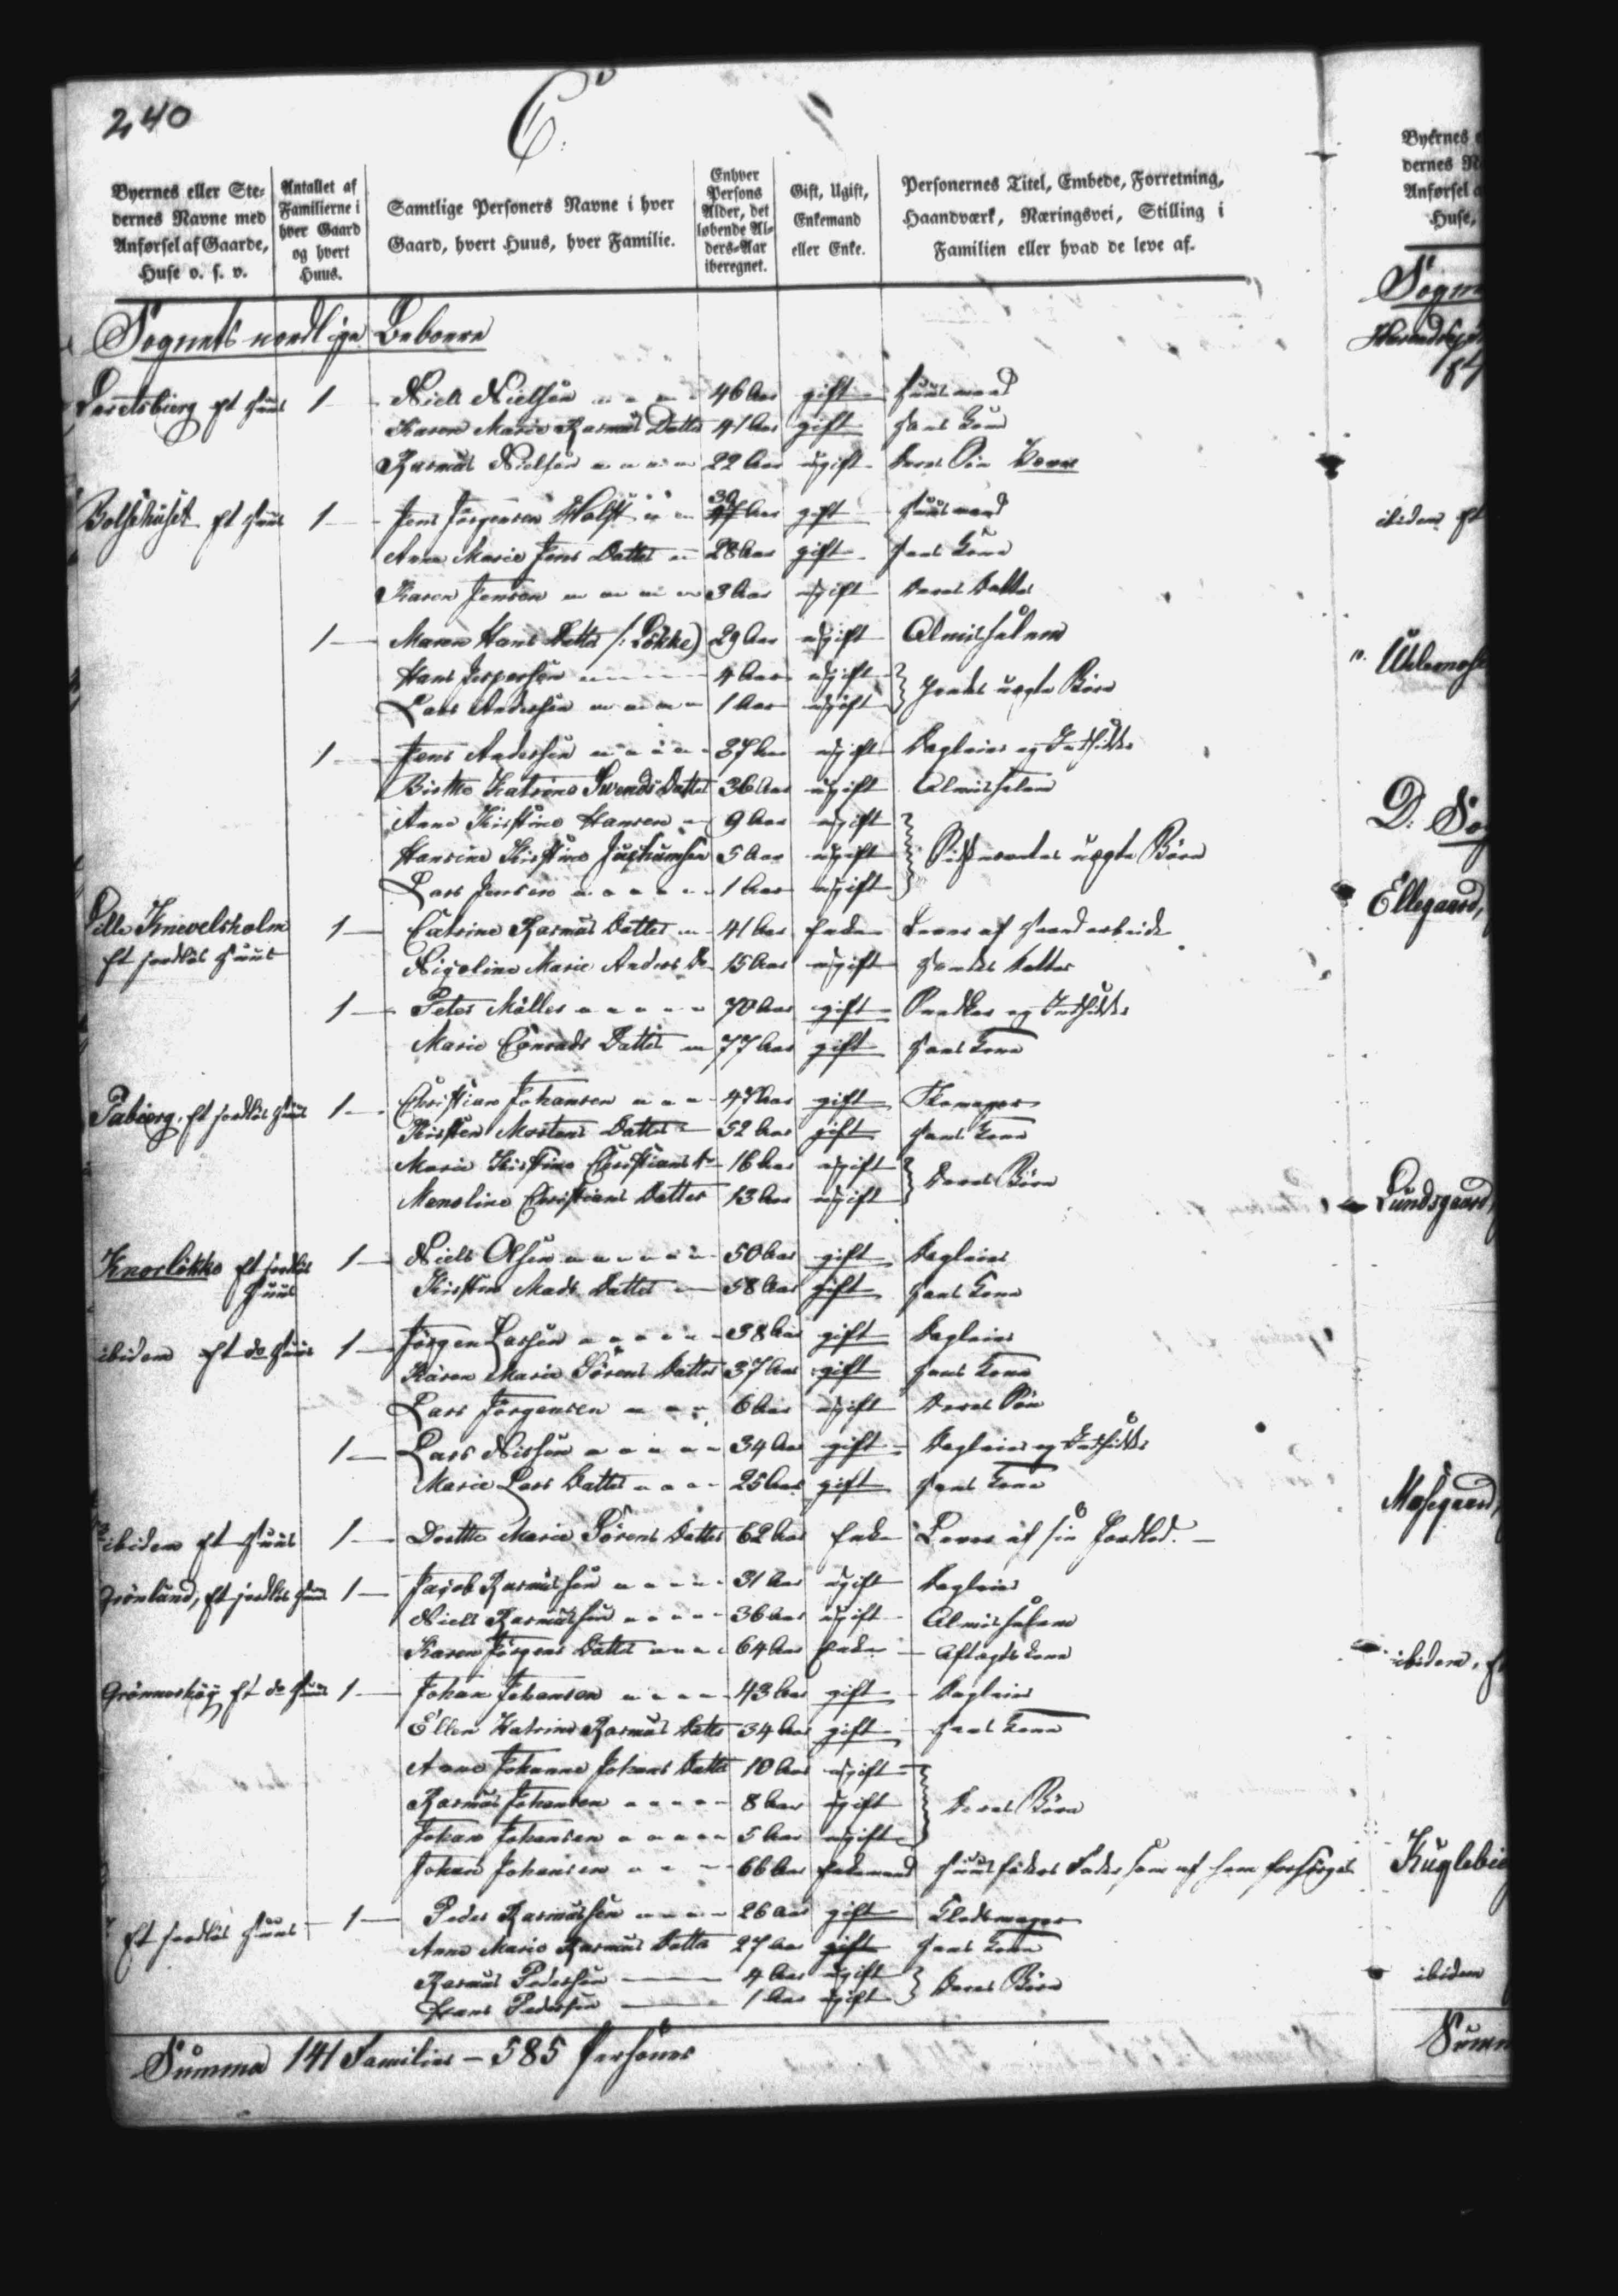 240
C.
Byernes eller Ste-
dernes Navne med
Anførsel af Gaarde,
Huse o. s. v.
Antallet af
Familierne i
hver Gaard
og hvert
Huus.
Samtlige Personers Navne i hver
Gaard, hvert Huus, hver Familie.
Enhver
Persons
Alder, det
løbende Al-
ders-Aar
iberegnet.
Gift, Ugift,
Enkemand
eller Enke.
Personernes Titel, Embede, Forretning,
Haandværk, Næringsvei, Stilling i
Familien eller hvad de leve af.
Sognets nordlige Beboere
et Huus 1 Niels Nielsen 46 Aar gift Huusmand
Karen Marie Rasmus Datter 41 Aar gift hans Kone
Rasmus Nielsen 22 Aar ugift deres Søn
Bolsehuset et Huus 1 Jens Jörgensen Holst 30 Aar gift Huusmand
Anna Marie Jens Datter 28 Aar gift hans Kone
Karen Jensen 3 Aar ugift deres Datter
1 Maren Hans Datter (: Lökke) 29 Aar ugift Almisselem
Hans Jespersen 4 Aar ugift
Lars Andersen 1 Aar ugift } hendes uægte Börn
1 Jens Andersen 37 Aar ugift Dagleier og Inderste
Birthe Katrine Svends Datter 36 Aar ugift Almisselem
Anne Kirstine Hansen 9 Aar ugift
Hansine Kirstine 5 Aar ugift } Sidstnævntes uægte Börn
Lars Jensen 1 Aar ugift
Lille Knevelsholm 1 Catrine Rasmus Datter 41 Aar Enke Lever af Haandarbeide
et jordløs Huus Nigoline Marie Anders Dr 15 Aar ugift hendes Datter
1 Peter Möller 70 Aar gift Snedker og Inderste
Marie Conrads Datter 77 Aar gift hans Kone
Pabierg, et jordløs Huus 1 Christian Johansen 47 Aar gift Skomager
Kirsten Mortens Datter 52 Aar gift hans Kone
Marie Kirstine Christians Dr 16 Aar ugift
Monoline Christians Datter 13 Aar ugift } deres Börn
Knorlökke et jordløs 1 Niels Olsen 50 Aar gift Dagleier
Huus Kirstine Mads Datter 58 Aar gift hans Kone
ibidem et do Huus 1 Jörgen Larsen 38 Aar gift Dagleier
Karen Marie Sörens Datter 37 Aar gift hans Kone
Lars Jörgensen 6 Aar ugift deres Søn
1 Lars Nissen 34 Aar gift Dagleier og Inderste
Marie Lars Datter 25 Aar gift hans Kone
ibidem et Huus 1 Dorthe Marie Sörens Datter 62 Aar Enke Lever af sin Jordlod.
Grönlund, et jordløs Huus 1 Jacob Rasmussen 31 Aar ugift Dagleier
Niels Rasmussen 36 Aar ugift Almisselem
Karen Jörgens Datter 64 Aar Enke Aftægtskone
Grönneshöy et do Huus 1 Johan Johansen 43 Aar gift Dagleier
Ellen Katrine Rasmus Datter 34 Aar gift hans Kone
Anne Johanne Johans Datter 10 Aar ugift
Rasmus Johansen 8 Aar ugift } deres Börn
Johan Johansen 5 Aar ugift
Johan Johansen 66 Aar Enkemand Huusfaders Fader som af ham forsörges
et jordløs Huus 1 Peder Rasmussen 26 Aar gift
Anne Marie Rasmus Datter 27 Aar gift hans Kone
Rasmus Pedersen 4 Aar ugift
Hans Pedersen 1 Aar ugift } deres Börn
Summa 141 Familier - 585 Personer
Byernes
dernes
Anførsel
Huse,
ibidem et
Ellegaard,
Lundsgaard,
Mosegaard,
ibidem,
ibidem